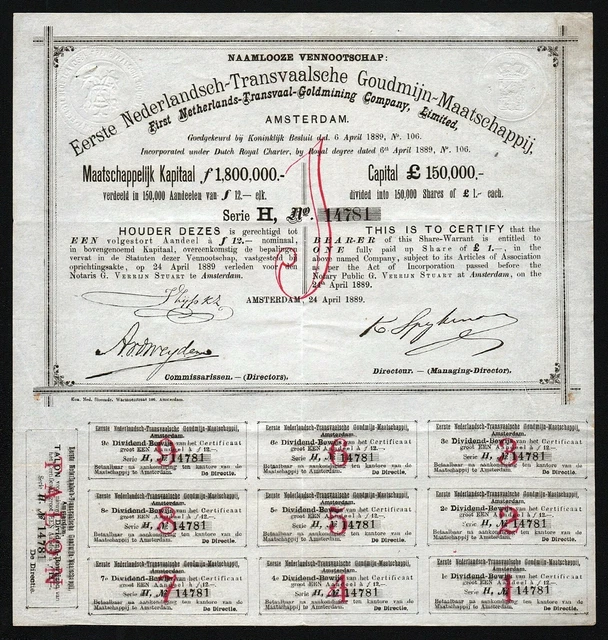 NAAMLOOZE VENNOOTSCHAP:
Eerste Nederlandsch-Transvaalsche Goudmijn-Maatschappij,
First Netherlands-Transvaal-Goldmining Company, Limited,
AMSTERDAM.
Goedgekeurd bij Koninklijk Besluit d.d. 6 April 1889, No. 106.
Incorporated under Dutch Royal Charter, by Royal degree dated 6th April 1889, No. 106.
Maatschappelijk Kapitaal ƒ 1,800,000.-
verdeeld in 150,000 Aandeelen van ƒ 12.— elk.
Capital £ 150,000.-
divided into 150,000 Shares of £ 1.- each.
Serie H, No. 14781
HOUDER DEZES is gerechtigd tot
EEN volgestort Aandeel à ƒ 12.— nominaal,
in bovengenoemd Kapitaal, overeenkomstig de bepalingen
vervat in de Statuten dezer Vennootschap, vastgesteld bij
oprichtingsakte, op 24 April 1889 verleden voor den
Notaris G. VERRIJN STUART te Amsterdam.
THIS IS TO CERTIFY that the
BEARER of this Share-Warrant is entitled to
ONE fully paid up Share of £ 1.—, in the
above named Company, subject to its Articles of Association
as per the Act of Incorporation passed before the
Notary Public G. VERRIJN STUART at Amsterdam, on the
24th April 1889.
AMSTERDAM, 24 April 1889.
Commissarissen. — (Directors).
Directeur. — (Managing-Director).
Amsterdam.
Eerste Nederlandsch-Transvaalsche Goudmijn-Maatschappij,
Amsterdam.
9e Dividend-Bewijs van het Certificaat
groot EEN Aandeel à ƒ 12.—
Serie H, No 14781
Betaalbaar na aankondiging ten kantore van de
Maatschappij te Amsterdam. De Directie.
9
Eerste Nederlandsch-Transvaalsche Goudmijn-Maatschappij,
Amsterdam.
6e Dividend-Bewijs van het Certificaat
groot EEN Aandeel à ƒ 12.—
Serie H, No 14781
Betaalbaar na aankondiging ten kantore van de
Maatschappij te Amsterdam. De Directie.
6
Eerste Nederlandsch-Transvaalsche Goudmijn-Maatschappij,
Amsterdam.
3e Dividend-Bewijs van het Certificaat
groot EEN Aandeel à ƒ 12.—
Serie H, No 14781
Betaalbaar na aankondiging ten kantore van de
Maatschappij te Amsterdam. De Directie.
3
Eerste Nederlandsch-Transvaalsche Goudmijn-Maatschappij,
Amsterdam.
8e Dividend-Bewijs van het Certificaat
groot EEN Aandeel à ƒ 12.—
Serie H, No 14781
Betaalbaar na aankondiging ten kantore van de
Maatschappij te Amsterdam. De Directie.
8
Eerste Nederlandsch-Transvaalsche Goudmijn-Maatschappij,
Amsterdam.
5e Dividend-Bewijs van het Certificaat
groot EEN Aandeel à ƒ 12.—
Serie H, No 14781
Betaalbaar na aankondiging ten kantore van de
Maatschappij te Amsterdam. De Directie.
5
Eerste Nederlandsch-Transvaalsche Goudmijn-Maatschappij,
Amsterdam.
2e Dividend-Bewijs van het Certificaat
groot EEN Aandeel à ƒ 12.—
Serie H, No 14781
Betaalbaar na aankondiging ten kantore van de
Maatschappij te Amsterdam. De Directie.
2
Eerste Nederlandsch-Transvaalsche Goudmijn-Maatschappij,
Amsterdam.
7e Dividend-Bewijs van het Certificaat
groot EEN Aandeel à ƒ 12.—
Serie H, No 14781
Betaalbaar na aankondiging ten kantore van de
Maatschappij te Amsterdam. De Directie.
7
Eerste Nederlandsch-Transvaalsche Goudmijn-Maatschappij,
Amsterdam.
4e Dividend-Bewijs van het Certificaat
groot EEN Aandeel à ƒ 12.—
Serie H, No 14781
Betaalbaar na aankondiging ten kantore van de
Maatschappij te Amsterdam. De Directie.
4
Eerste Nederlandsch-Transvaalsche Goudmijn-Maatschappij,
Amsterdam.
1e Dividend-Bewijs van het Certificaat
groot EEN Aandeel à ƒ 12.—
Serie H, No 14781
Betaalbaar na aankondiging ten kantore van de
Maatschappij te Amsterdam. De Directie.
1
Eerste Nederlandsch-Transvaalsche Goudmijn-Maatschappij,
Amsterdam.
TALON
Serie H, No 14781
De Directie.
TALON